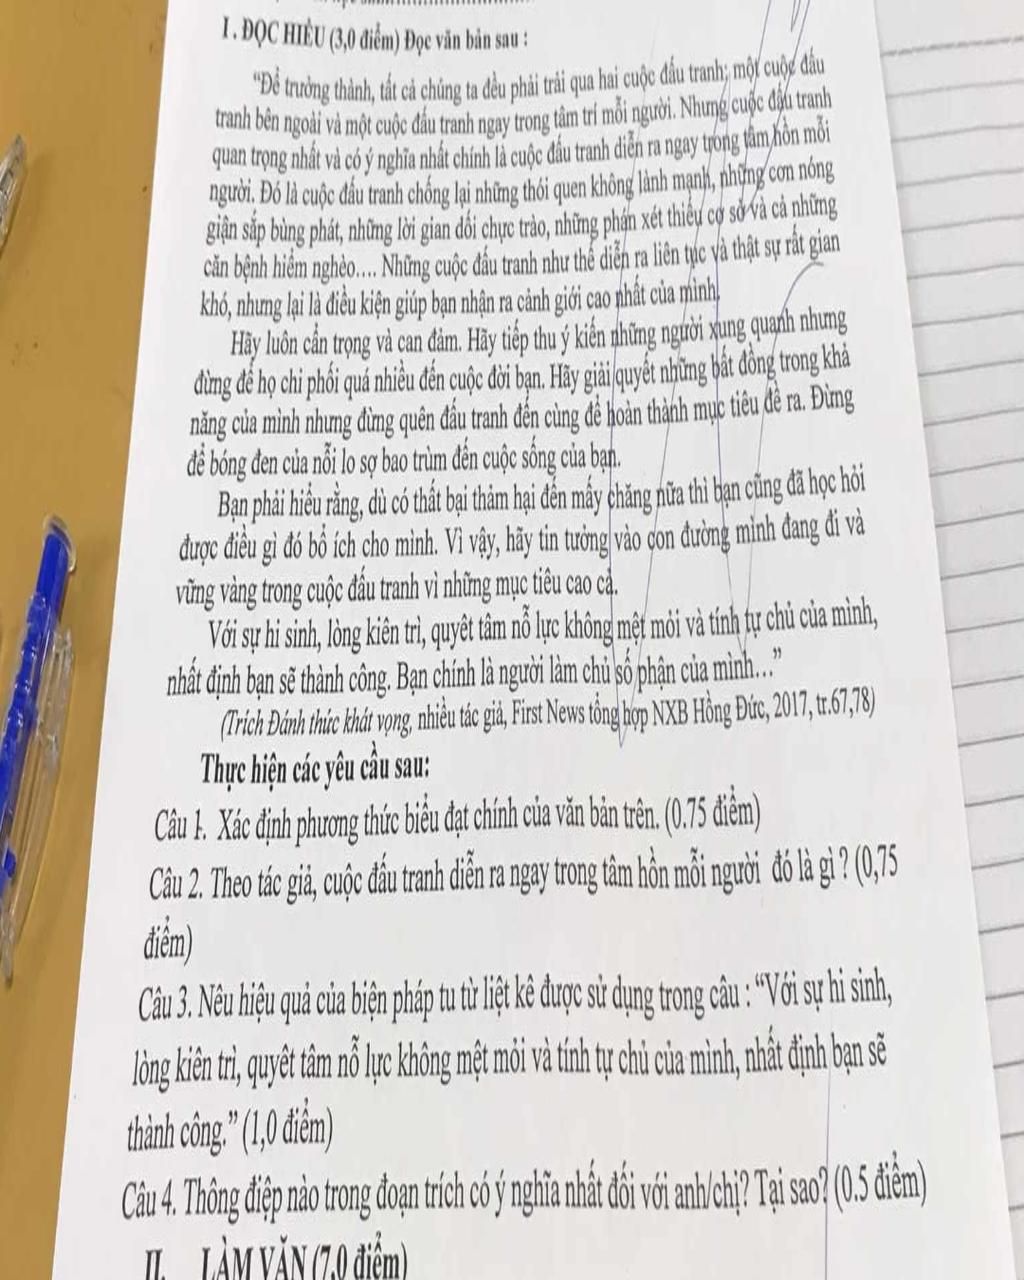 I . ĐỌC HIỂU (3,0 điểm) Đọc văn bản sau :
“Để trưởng thành, tất cả chúng ta đều phải trải qua hai cuộc đấu tranh: một cuộc đấu
tranh bên ngoài và một cuộc đấu tranh ngay trong tâm trí mỗi người. Nhưng cuộc đấu tranh
quan trọng nhất và có ý nghĩa nhất chính là cuộc đấu tranh diễn ra ngay trong tâm hồn mỗi
người. Đó là cuộc đấu tranh chống lại những thói quen không lành mạnh, những cơn nóng
giận sắp bùng phát, những lời gian dối chực trào, những phán xét thiếu cơ sở và cả những
căn bệnh hiểm nghèo.... Những cuộc đấu tranh như thế diễn ra liên tục và thật sự rất gian
khó, nhưng lại là điều kiện giúp bạn nhận ra cảnh giới cao nhất của mình.
Hãy luôn cẩn trọng và can đảm. Hãy tiếp thu ý kiến những người xung quanh nhưng
đừng để họ chi phối quá nhiều đến cuộc đời bạn. Hãy giải quyết những bất đồng trong khả
năng của mình nhưng đừng quên đấu tranh đến cùng để hoàn thành mục tiêu đề ra. Đừng
để bóng đen của nỗi lo sợ bao trùm đến cuộc sống của bạn.
Bạn phải hiểu rằng, dù có thất bại thảm hại đến mấy chăng nữa thì bạn cũng đã học hỏi
được điều gì đó bổ ích cho mình. Vì vậy, hãy tin tưởng vào con đường mình đang đi và
vững vàng trong cuộc đấu tranh vì những mục tiêu cao cả.
Với sự hi sinh, lòng kiên trì, quyết tâm nỗ lực không mệt mỏi và tính tự chủ của mình,
nhất định bạn sẽ thành công. Bạn chính là người làm chủ số phận của mình…”
(Trích Đánh thức khát vọng, nhiều tác giả, First News tổng hợp NXB Hồng Đức, 2017, tr.67,78)
Thực hiện các yêu cầu sau:
Câu 1. Xác định phương thức biểu đạt chính của văn bản trên. (0.75 điểm)
Câu 2. Theo tác giả, cuộc đấu tranh diễn ra ngay trong tâm hồn mỗi người đó là gì ? (0,75
điểm)
Câu 3. Nêu hiệu quả của biện pháp tu từ liệt kê được sử dụng trong câu : “Với sự hi sinh,
lòng kiên trì, quyết tâm nỗ lực không mệt mỏi và tính tự chủ của mình, nhất định bạn sẽ
thành công.” (1,0 điểm)
Câu 4. Thông điệp nào trong đoạn trích có ý nghĩa nhất đối với anh/chị? Tại sao? (0.5 điểm)
II. LÀM VĂN (7,0 điểm)